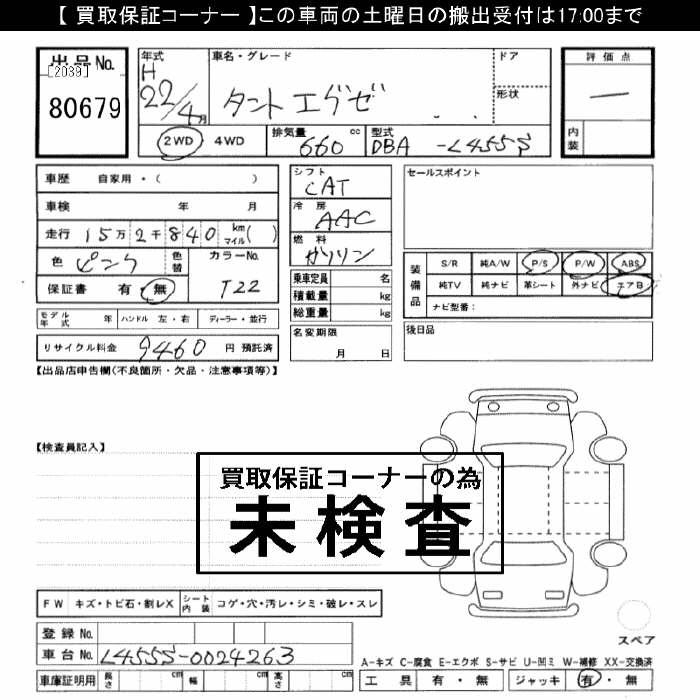 【 買取保証コーナー 】この車両の土曜日の搬出受付は17:00まで
出品No.
[2039]
80679
年式
H
22/4月
車名・グレード
タント エグゼ
ドア
形状
評価点
―
内装
2WD 4WD
排気量
660 cc
型式
DBA -L455S
車歴 自家用・( )
車検 年 月
走行 15万2千840 km マイル( )
色 ピンク
色替
カラーNo.
T22
保証書 有・無
シフト
CAT
冷房
AAC
燃料
ガソリン
乗車定員 名
積載量 kg
総重量 kg
セールスポイント
装備品
S/R 純A/W P/S P/W ABS
純TV 純ナビ 革シート 外ナビ エアB
ナビ型番:
モデル年式 年 ハンドル 左・右 ディーラー・並行
名変期限
月 日
後日品
リサイクル料金 9460 円 預託済
【出品店申告欄(不良箇所・欠品・注意事項等)】
【検査員記入】
買取保証コーナーの為
未検査
FW キズ・トビ石・割レX シート内装 コゲ・穴・汚レ・シミ・破レ・スレ
登録No.
車台No. L455S-0024263
車庫証明用 長さ cm 幅 cm 高さ cm
スペア
A-キズ C-腐食 E-エクボ S-サビ U-凹ミ W-補修 XX-交換済
工具 有・無 ジャッキ 有・無